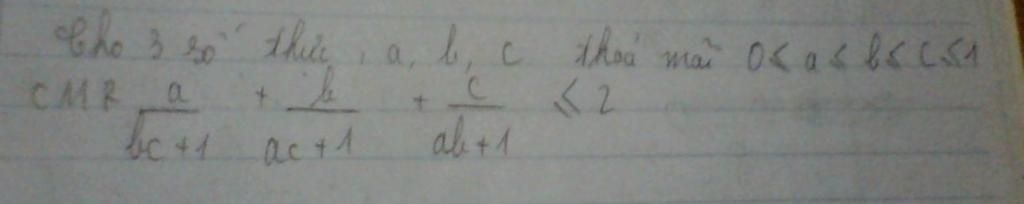 Cho 3 số thức, a, b, c thoả mãn 0 ≤ a ≤ b ≤ c ≤ 1
CMR a/(bc+1) + b/(ac+1) + c/(ab+1) ≤ 2